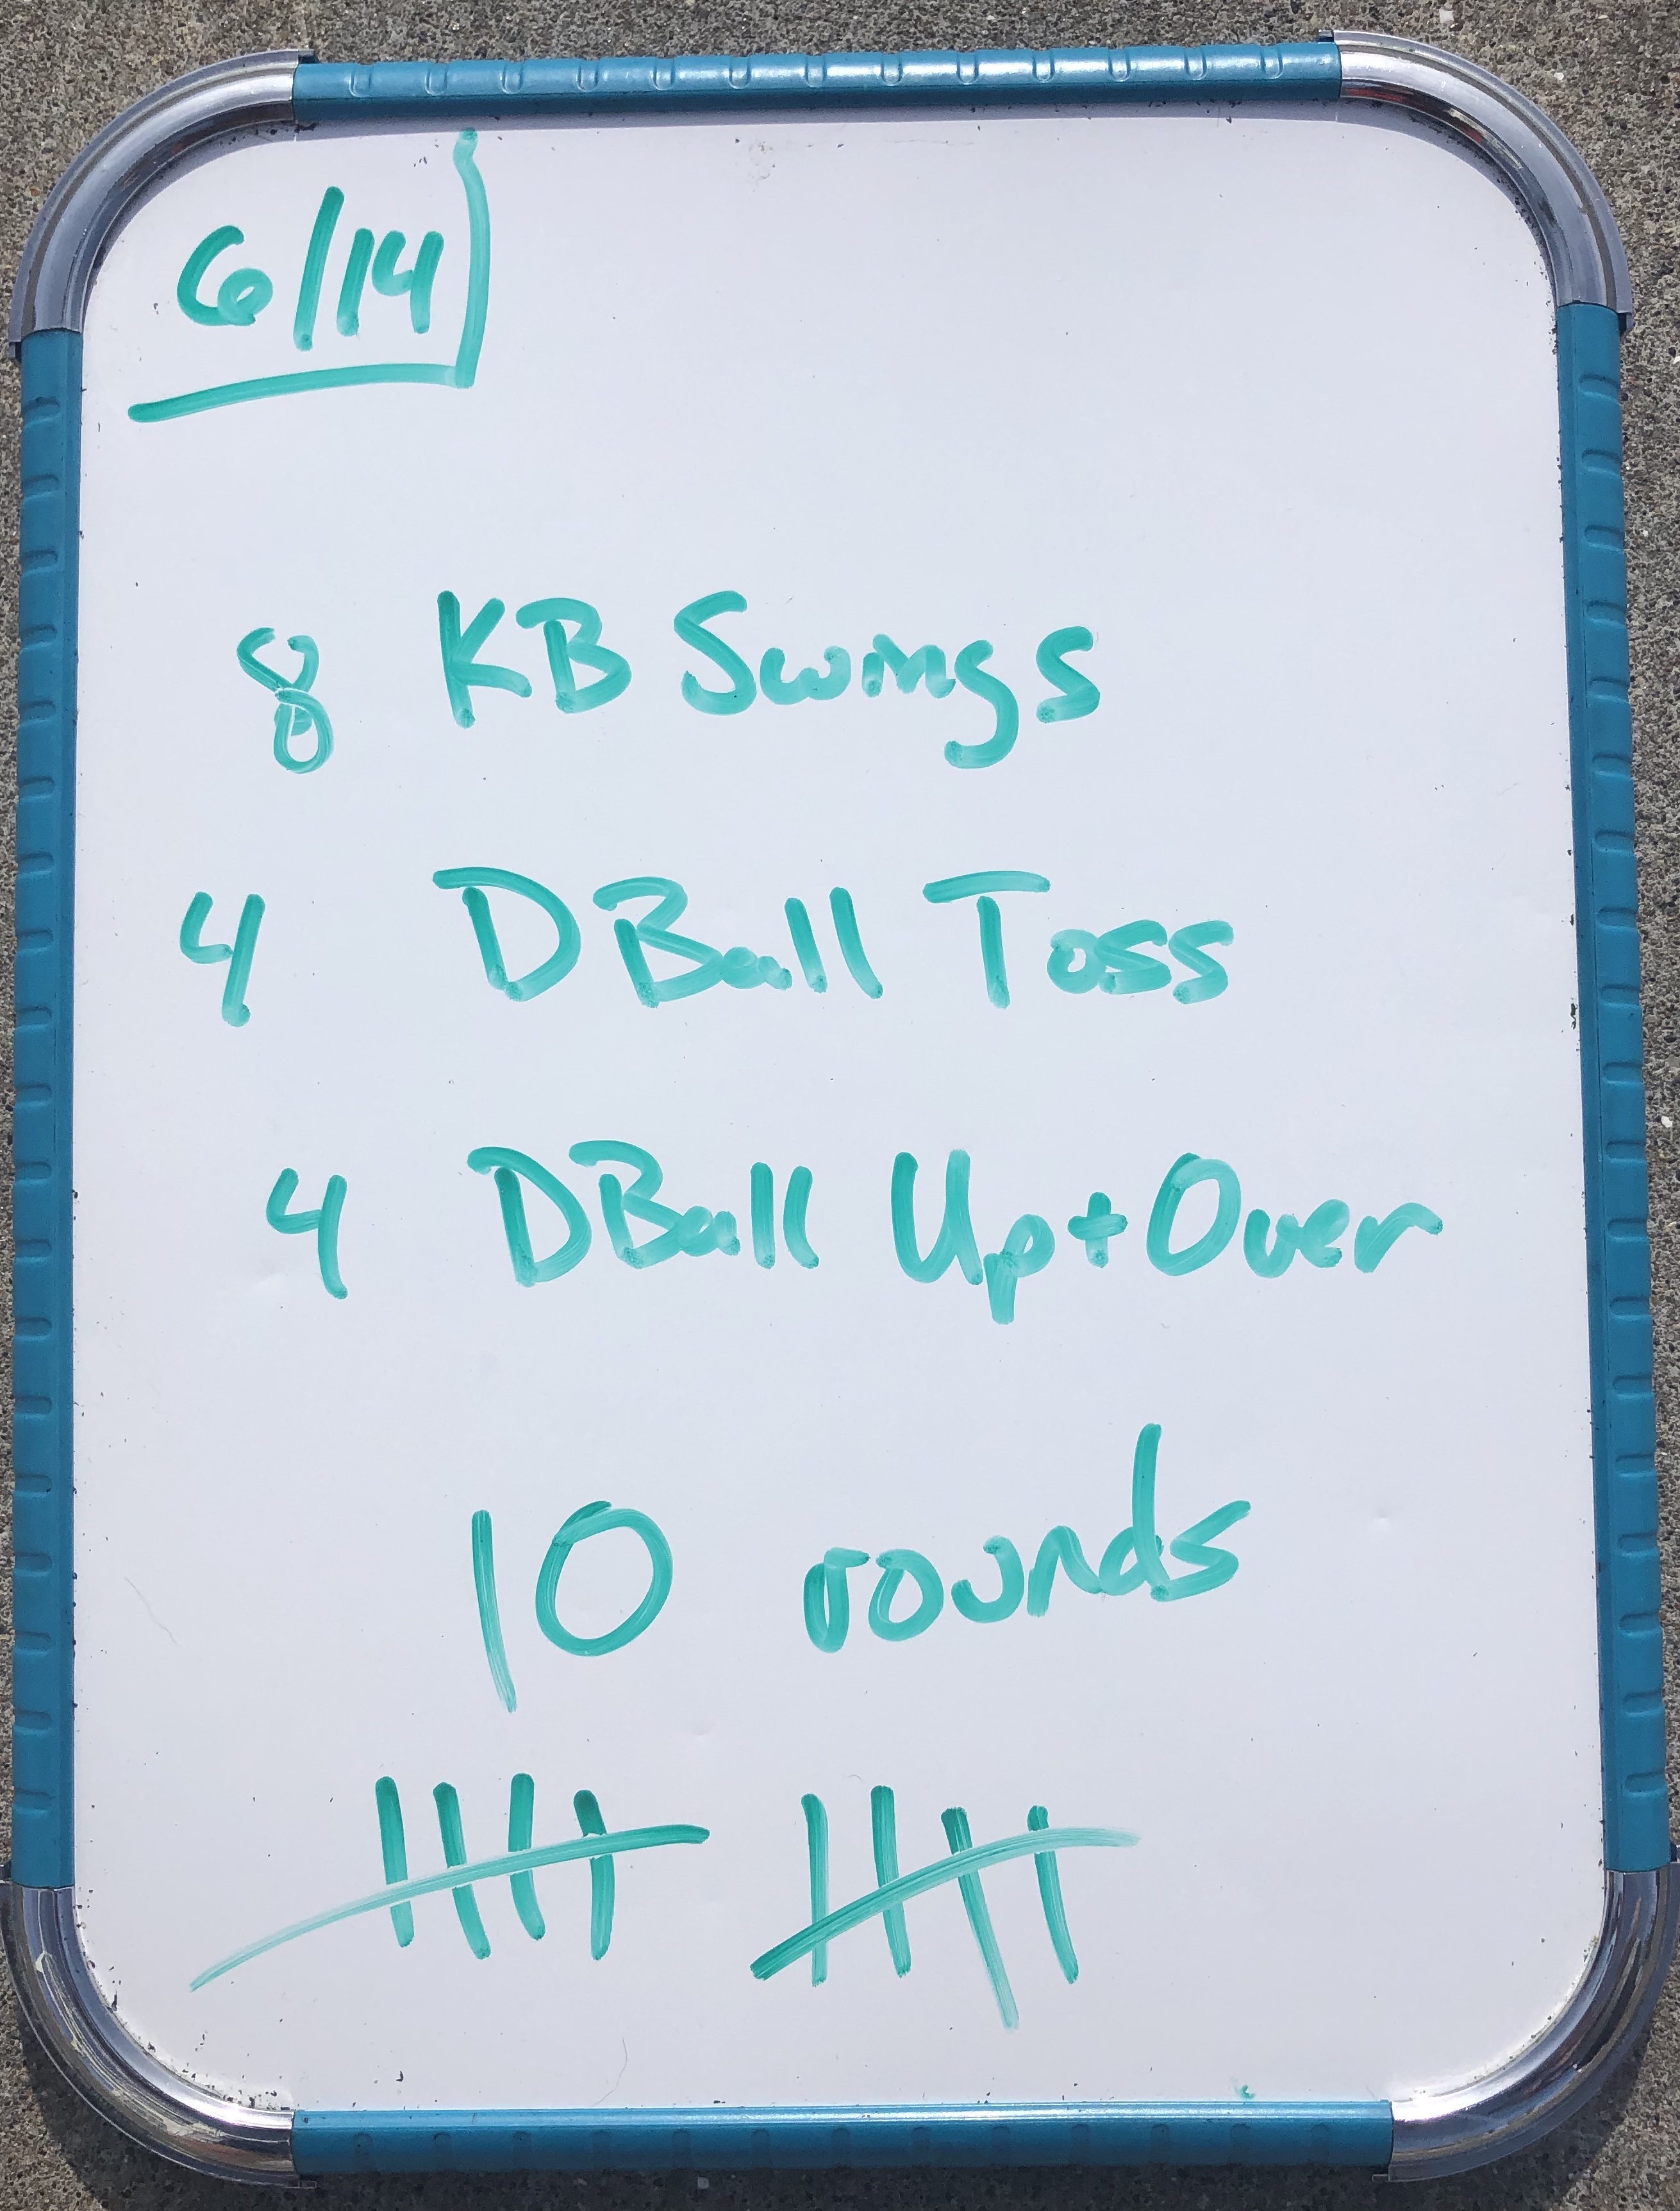 6/14
8 KB Swings
4 DBall Toss
4 DBall Up+Over
10 rounds